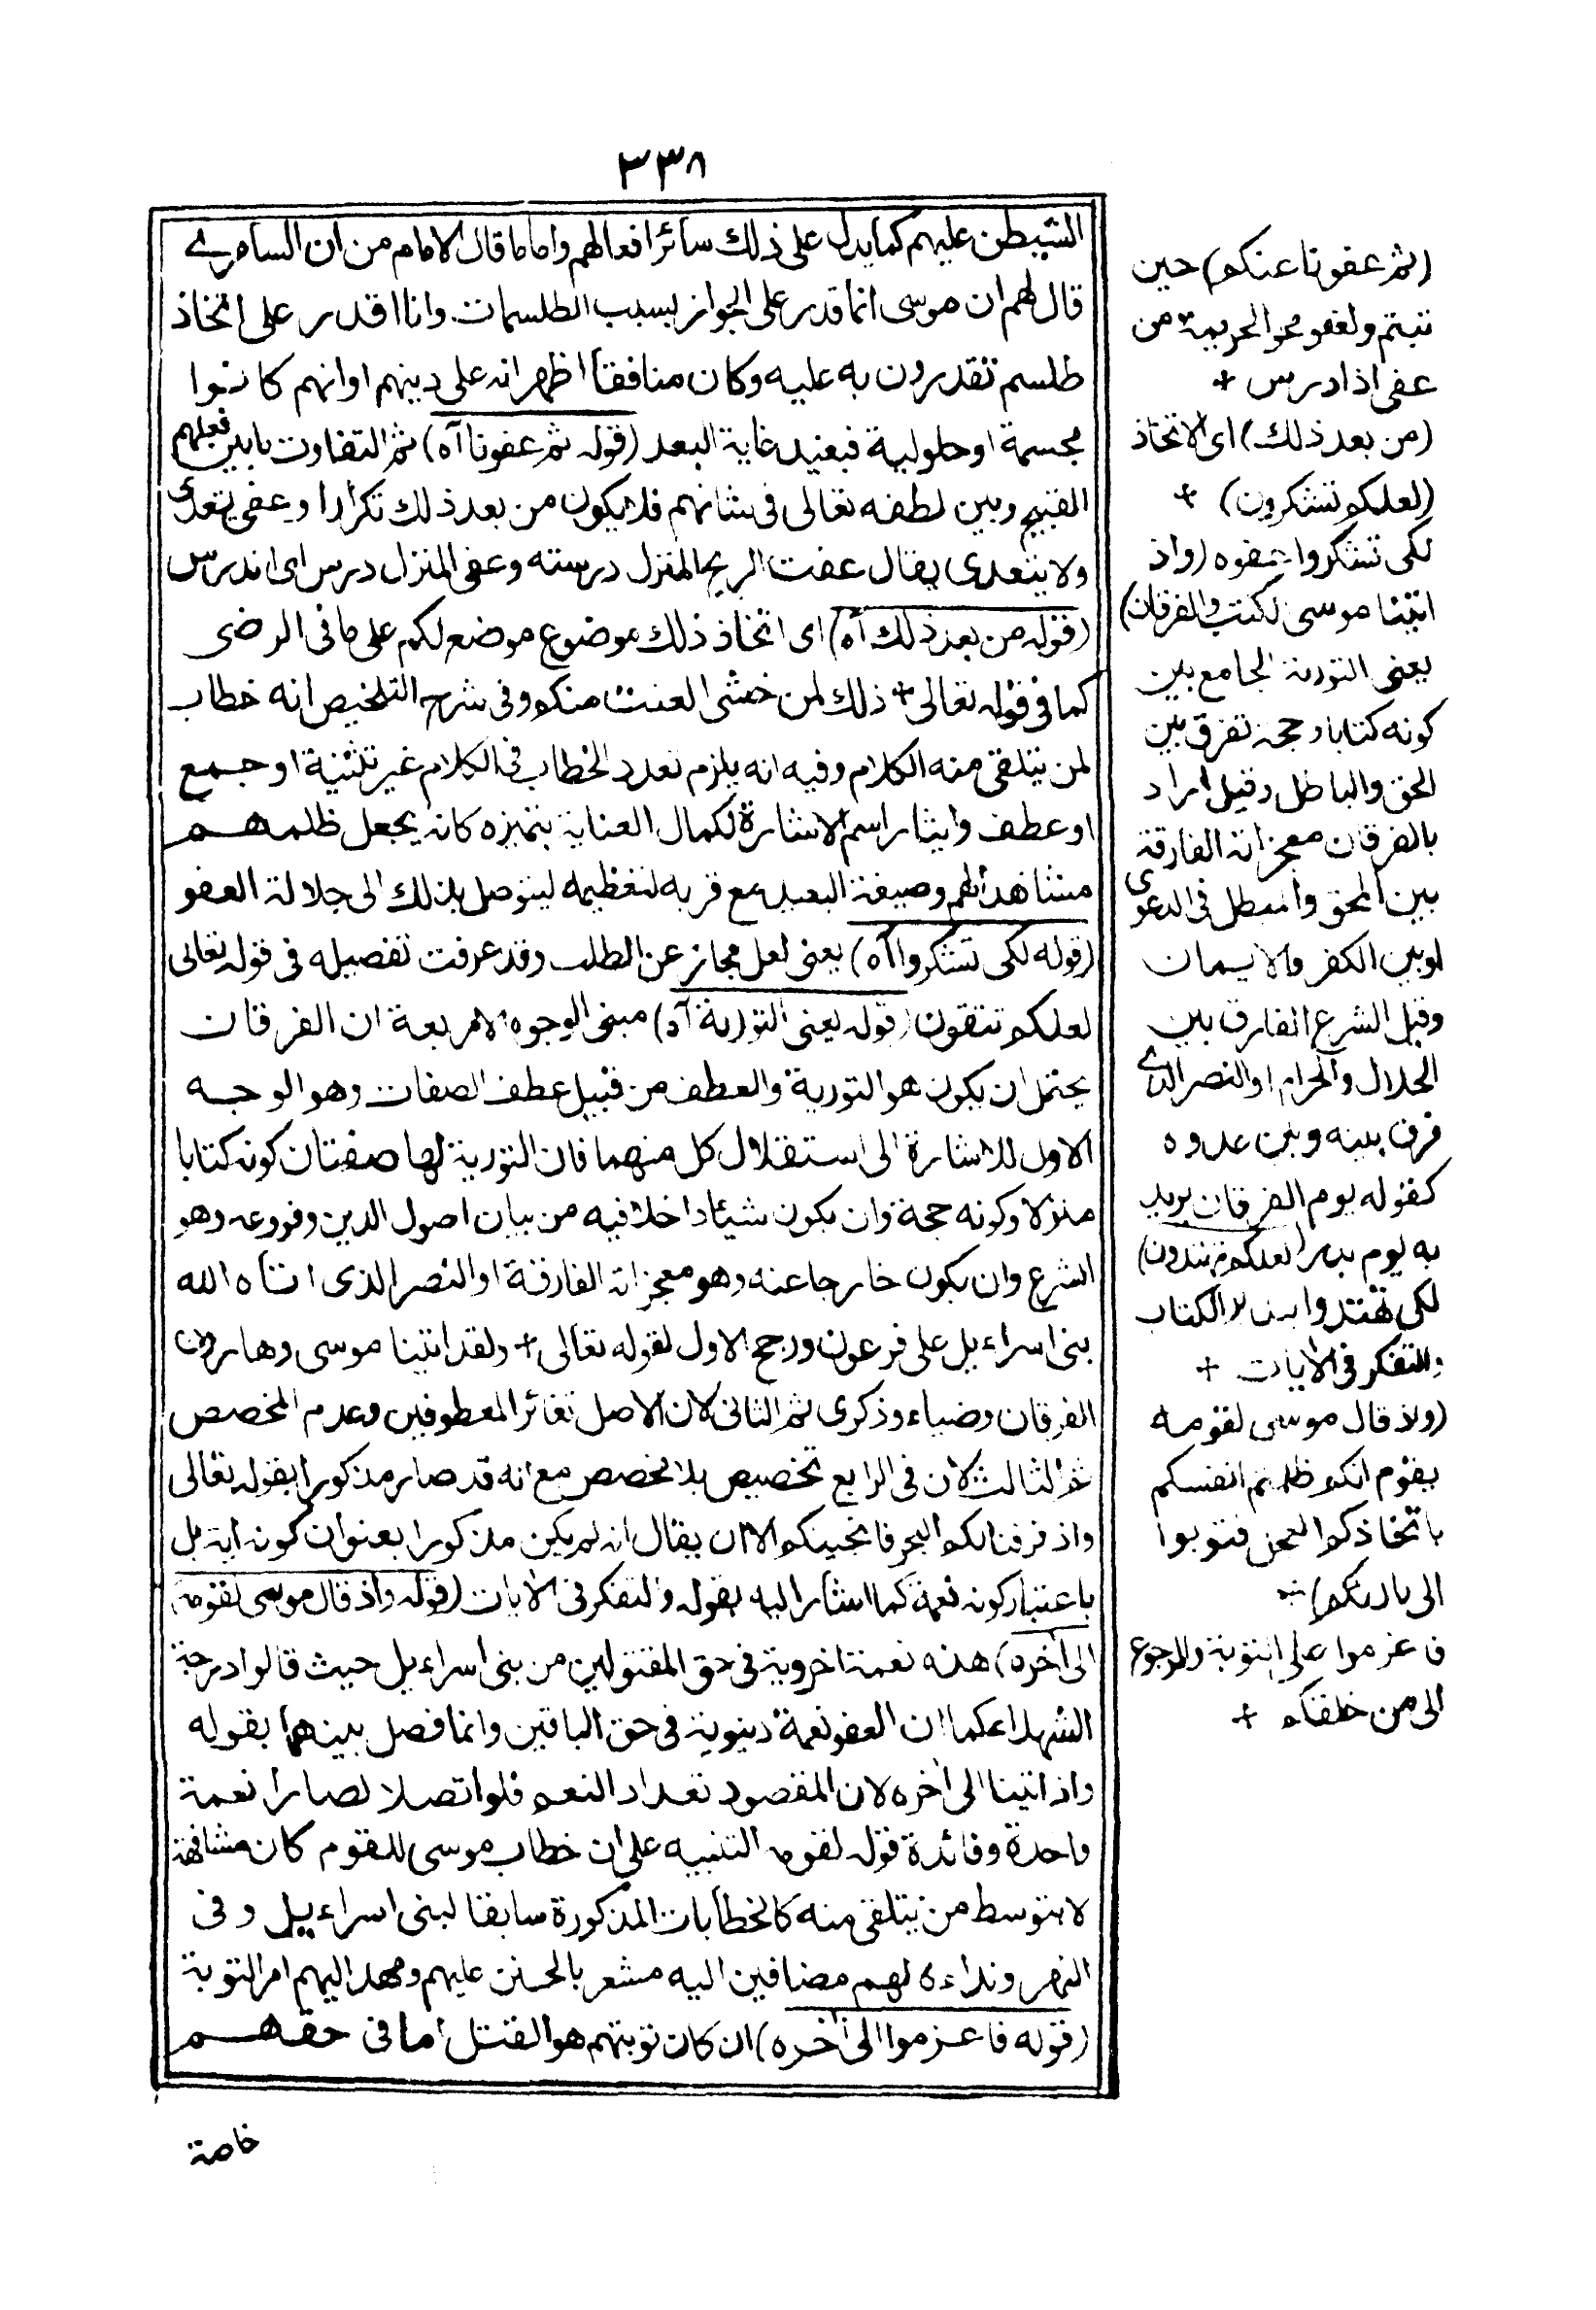 ٣٣٨
الشيطن عليهم كما يدل على ذلك سائر افعالهم واما ما قال الامام من ان السامرے
قال لهم ان موسى انما قدر على الجواز بسبب الطلسمات وانا اقدر على اتخاذ
طلسم تقدرون به عليه وكان منافقا اظهر انه على دينهم او انهم كانوا
مجسمة او حلولية فبعيد غاية البعد (قوله ثم عفونا آه) ثم التفاوت ما بين فعلهم
القبيح وبين لطفه تعالى فى شانهم فلا يكون من بعد ذلك تكرارا وعفى يتعدى
ولا يتعدى يقال عفت الريح المنزل درسته وعفى المنزل درس اى اندرس
(قوله من بعد ذلك آه) اى اتخاذ ذلك موضوع موضع لكم على ما فى الرضى
كما فى قوله تعالى + ذلك لمن خشى العنت منكم وفى شرح التلخيص انه خطاب
لمن يتلقى منه الكلام وفيه انه يلزم تعدد الخطاب فى الكلام غير تثنية او جمع
او عطف وايثار اسم الاشارة لكمال العناية بتميزه كانه يجعل ظلمهم
مشاهدا لهم وصيغة البعيد مع قربه لتعظيمه ليتوصل بذلك الى جلالة العفو
(قوله لكى تشكروا آه) يعنى لعل مجاز عن الطلب وقد عرفت تفصيله فى قوله تعالى
لعلكم تتقون (قوله يعنى التورية آه) مبنى الوجوه الاربعة ان الفرقان
يحتمل ان يكون هو التورية والعطف من قبيل عطف الصفات وهو الوجه
الاول للاشارة الى استقلال كل منهما فان التورية لها صفتان كونه كتابا
منزلا وكونه حجة وان يكون شيئا داخلا فيه من بيان اصول الدين وفروعه وهو
الشرع وان يكون خارجا عنه وهو معجزاته الفارقة او النصر الذى اتاه الله
بنى اسراءيل على فرعون ورجح الاول لقوله تعالى + ولقد اتينا موسى وهارون
الفرقان وضياء وذكرى ثم الثانى لان الاصل تغائر المعطوفين وعدم المخصص
ثم الثالث لان فى الرابع تخصيص بلا مخصص مع انه قد صار مذكورا بقوله تعالى
واذ فرقنا بكم البحر فانجينكم الا ان يقال انه لم يكن مذكورا بعنوان كونه اية بل
باعتبار كونه نعمة كما اشار اليه بقوله والتفكر فى الايات (قوله واذ قال موسى لقومه
الى آخره) هذه نعمة اخروية فى حق المقتولين من بنى اسراءيل حيث قالوا درجة
الشهداء كما ان العفو نعمة دينوية فى حق الباقين وانما فصل بينهما بقوله
واذ اتينا الى آخره لان المقصود تعداد النعم فلو اتصلا لصارا نعمة
واحدة وفائدة قوله لقومه التنبيه على ان خطاب موسى للقوم كان مشافهة
لا بتوسط من يتلقى منه كالخطابات المذكورة سابقا لبنى اسراءيل وفى
النهر ونداءه لهم مضافين اليه مشعر بالحسن عليهم ومهد اليهم امر التوبة
(قوله فاعزموا الى آخره) ان كان توبتهم هو القتل اما فى حقهم
خاصة
(ثم عفونا عنكم) حين
تبتم ولعفو محو الجريمة من
عفى اذا درس +
(من بعد ذلك) اى الاتخاذ
(لعلكم تشكرون) +
لكى تشكروا عفوه (واذ
اتينا موسى الكتب والفرقان)
يعنى التورية الجامع بين
كونه كتابا وحجة تفرق بين
الحق والباطل وقيل اراد
بالفرقان معجزاته الفارقة
بين المحق والمبطل فى الدعوى
او بين الكفر والايمان
وقيل الشرع الفارق بين
الحلال والحرام او النصر الذے
فرق بينه وبين عدوه
كقوله يوم الفرقان يريد
به يوم بدر (لعلكم تهتدون)
لكى تهتدوا بتدبر الكتاب
والتفكر فى الايات +
(واذ قال موسى لقومه
يقوم انكم ظلمتم انفسكم
باتخاذكم العجل فتوبوا
الى بارئكم)
فاعزموا على التوبة والرجوع
الى من خلقكم +